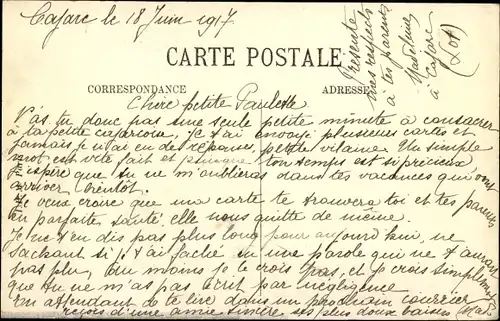 Cajarc le 18 Juin 1917
CARTE POSTALE
CORRESPONDANCE
ADRESSE
Présente
mes respects
à tes parents
Madeleine
à Cajarc
(Lot)
Chère petite Paulette
N'as tu donc pas une seule petite minute à consacrer
à ta petite cajarcoise, je t'ai envoyé plusieures cartes et
jamais je n'ai eu de réponses, petite vilaine. Un simple
mot est vite fait et puisque ton temps est si précieux
j'espère que tu ne m'oublieras dans tes vacances qui vont
arriver bientôt.
Je veux croire que ma carte te trouvera toi et tes parents
en parfaite santé, elle nous quitte de même.
Je ne t'en dis pas plus long pour aujourd'hui, ne
sachant si je t'ai fachée en une parole qui ne t'aurait
pas plu, du moins je le crois pas, et je crois simplement
que tu ne m'as pas écrit par négligence
En attendant de te lire dans un prochain courrier
reçois d'une amie sincère ses plus doux baisers